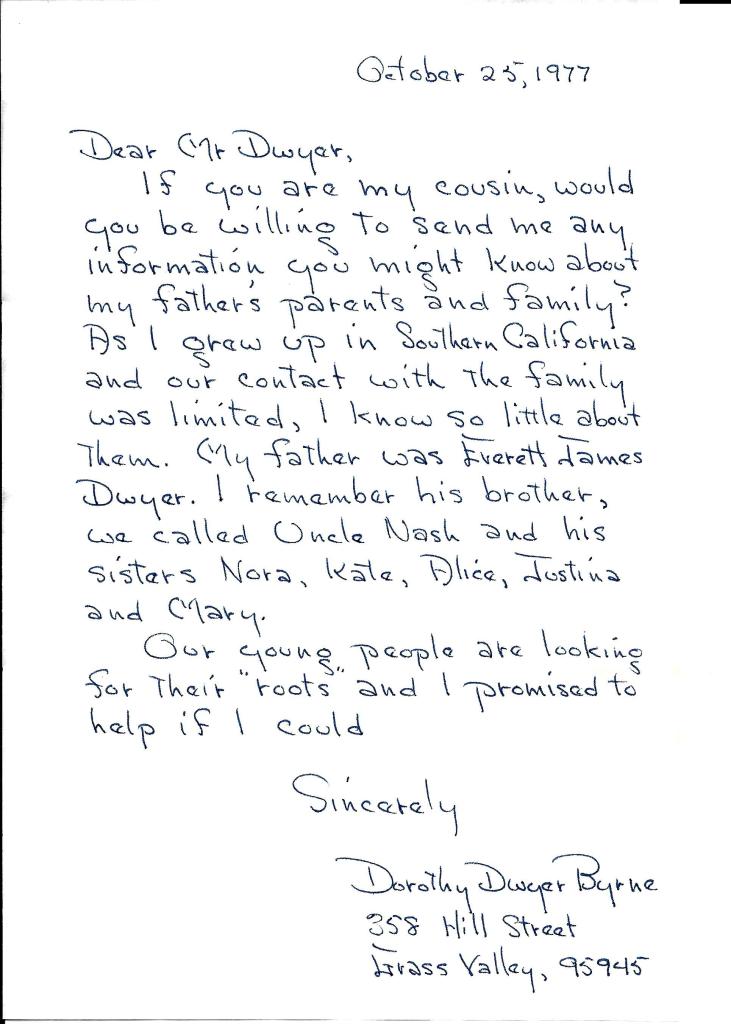 October 25, 1977
Dear Mr Dwyer,
If you are my cousin, would
you be willing to send me any
information you might know about
my father's parents and family?
As I grew up in Southern California
and our contact with the family
was limited, I know so little about
them. My father was Everett James
Dwyer. I remember his brother,
we called Uncle Nash and his
sisters Nora, Kate, Alice, Justina
and Mary.
Our young people are looking
for their "roots" and I promised to
help if I could
Sincerely
Dorothy Dwyer Byrne
358 Hill Street
Grass Valley, 95945